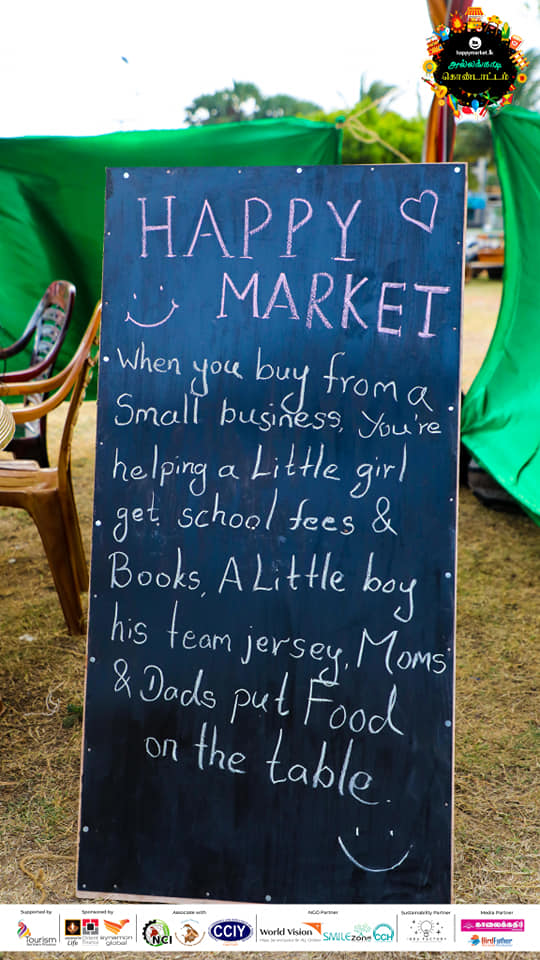 happymarket.lk
அல்லக்காடி
கொண்டாட்டம்
HAPPY
MARKET
When you buy from a
Small business, You're
helping a Little girl
get school fees &
Books, A Little boy
his team jersey, Moms
& Dads put Food
on the table.
Supported by
Sponsored by
Associate with
NGO Partner
Sustainability Partner
Media Partner
tourism
Life
synamon
global
NCI
CCIY
World Vision
SMILEzone
CCH
IDEA FACTORY
காலைக்கதிர்
BirdFather